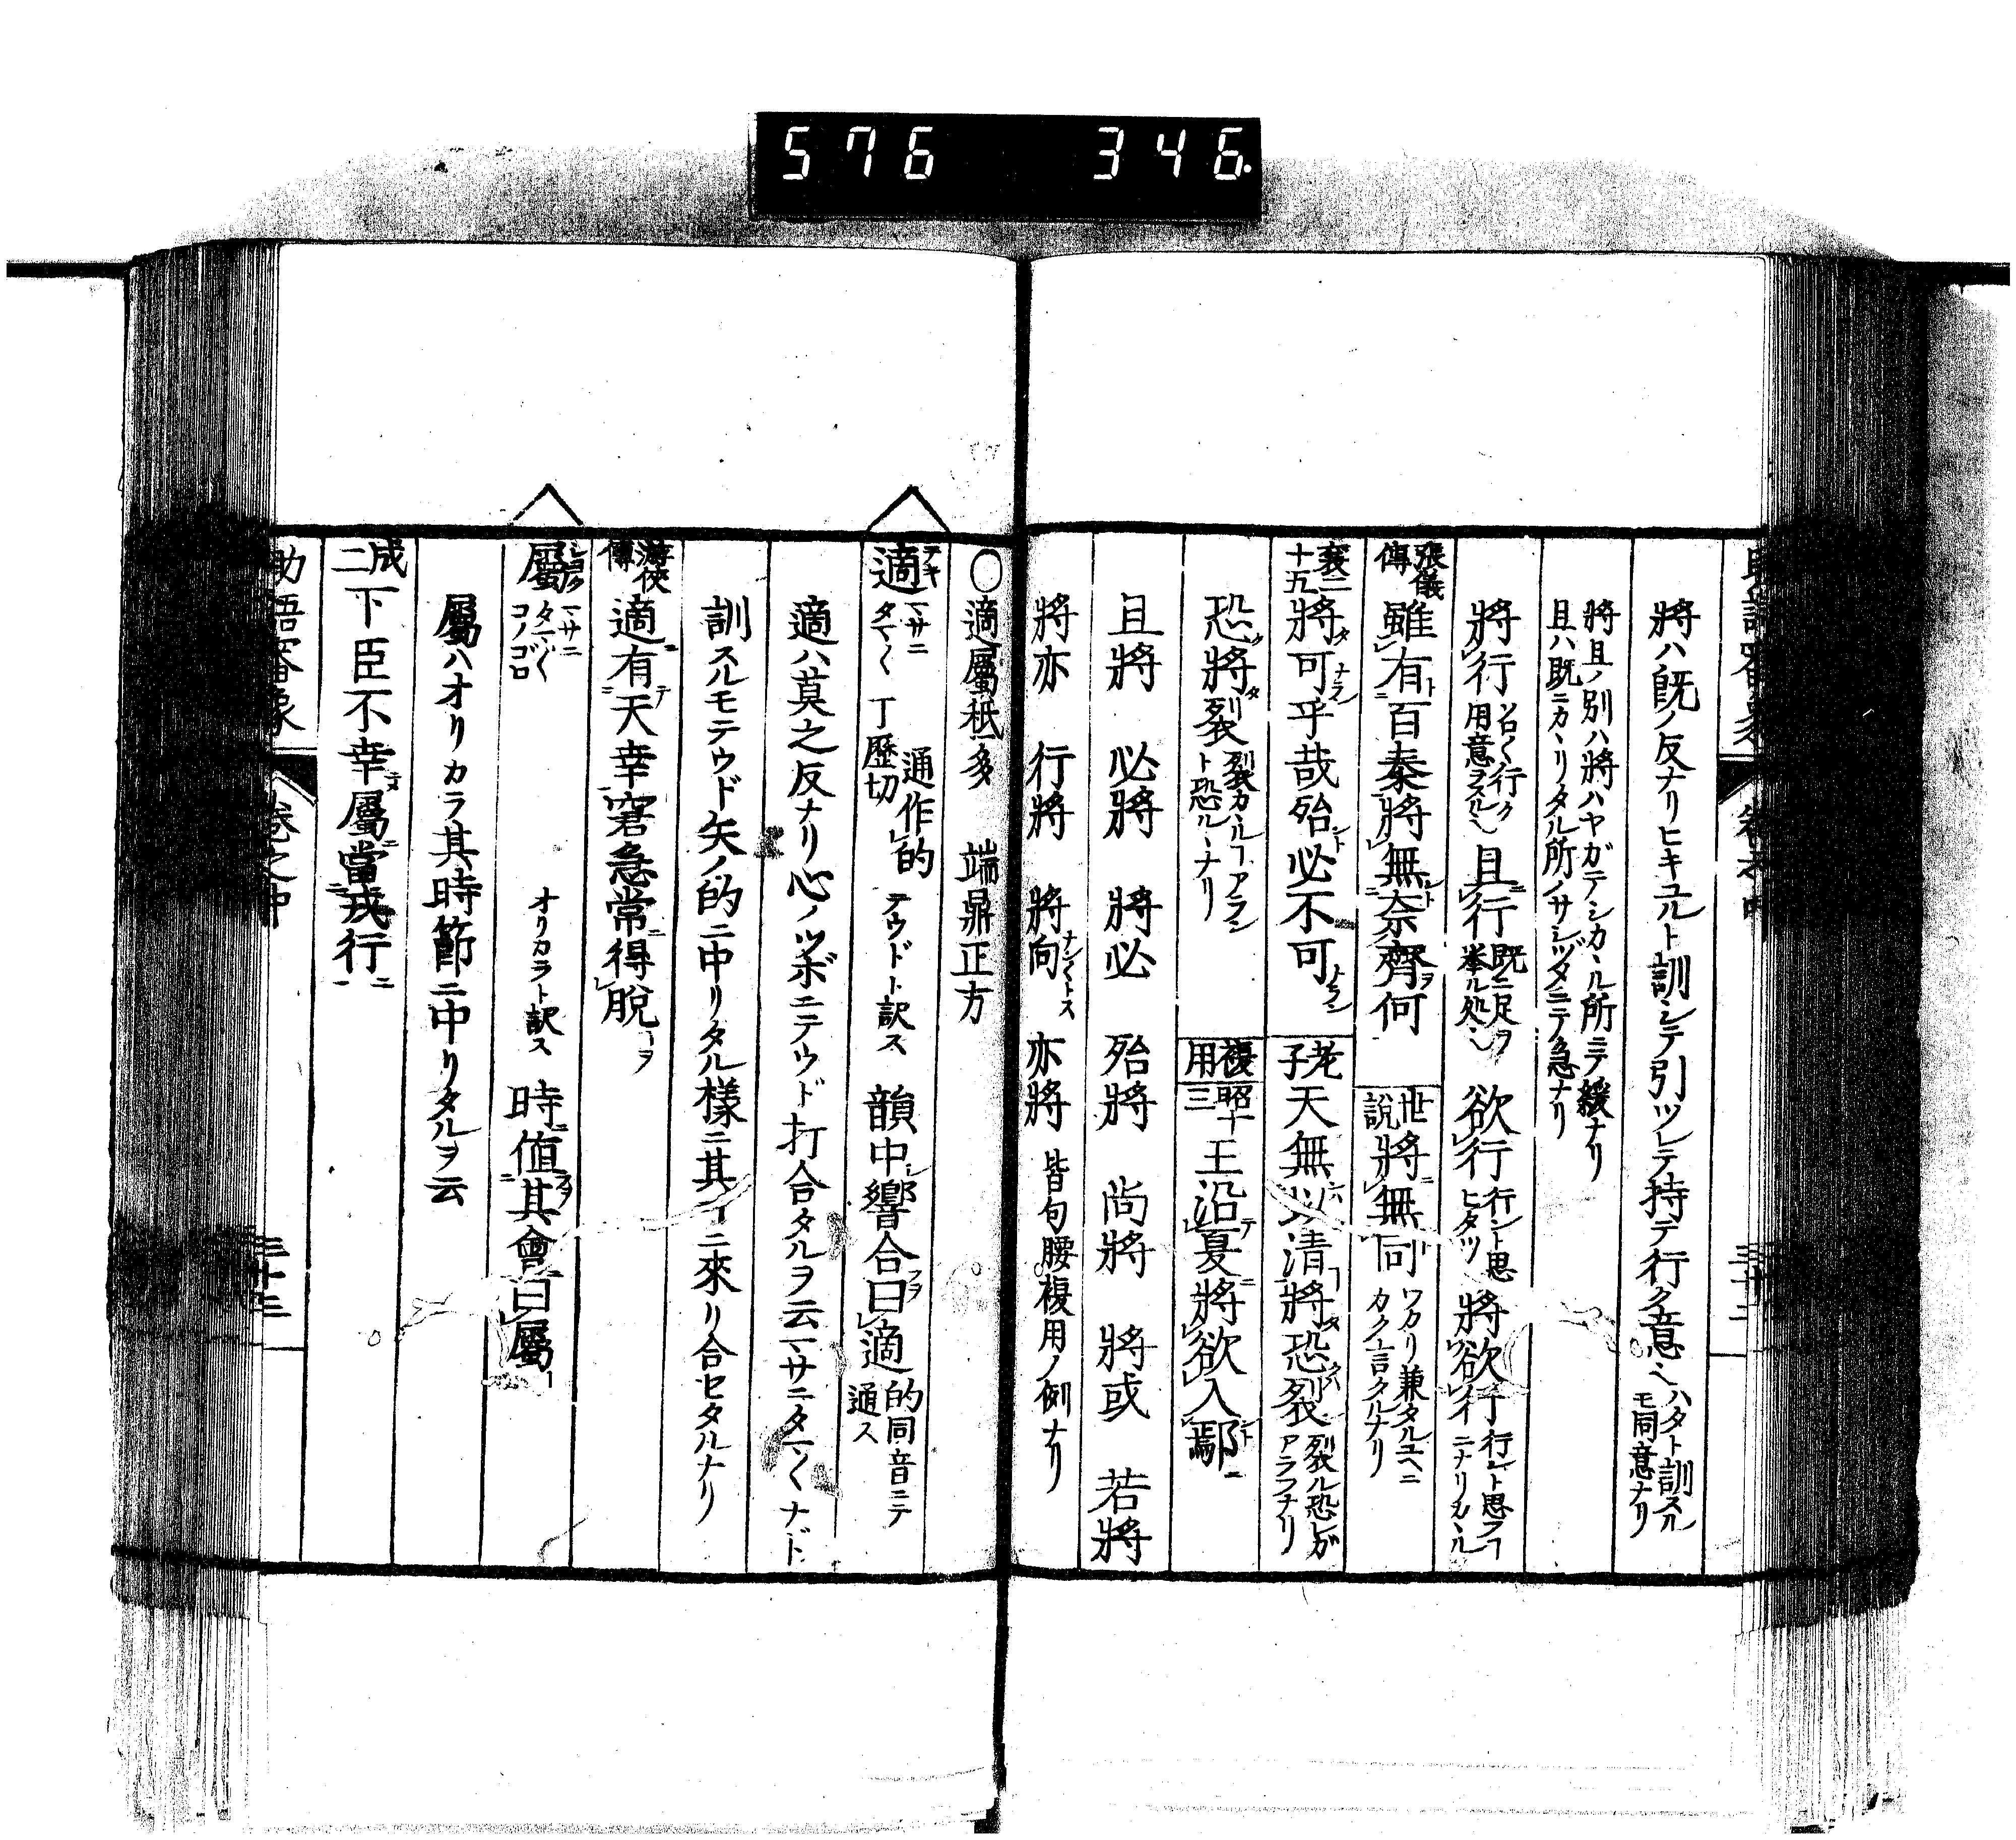 576 346
將ハ既ノ反ナリヒキユルト訓シテ引ツレテ持テ行ク意ヘ ハタト訓スル
モ同意ナリ
將且ノ別ハ將ハヤガテシカヽル所ニテノ緩ナリ
且ハ既ニカヽリタル所ノサシヅメニテノ急ナリ
將行 用意ヲスル 且行 既ニ足ヲ
挙ル処 欲行 行ント思
ヒタツ 將欲行
張儀
傳 雖有百秦將無奈齊何 世
說 將無同 ワカリ兼タルユヘニ
カク言タルナリ
襄二
十五 將可乎哉殆必不可 老
子 天無以清將恐裂 裂ル恐レガ
アラフナリ
恐將裂 ト恐ルヽナリ 複
用 昭十
三 王沿夏將欲入鄢
且將 必將 將必 殆將 尚將 將或 若將
將亦 行將 將向 亦將 皆句腰複用ノ例ナリ
○適屬祇多 端鼎正方
適 テキ マサニ
タマ〳〵 丁歷切 通作的 テウドト訳ス 韻中響合曰適 的同音ニテ
通ス
適ハ莫之反ナリ心ノツボニテウド打合タルヲ云マサニタマ〳〵ナド
訓スルモテウド矢ノ的ニ中リタル樣ニ其ヿニ來リ合セタルナリ
游俠
傳 適有天幸窘急常得脫
屬 マサニ
タマ〳〵
コノゴロ オリカラト訳ス 時値其會曰屬
屬ハオリカラ其時節ニ中リタルヲ云
成
二 下臣不幸屬當戎行
助語審象 卷之中 三十三